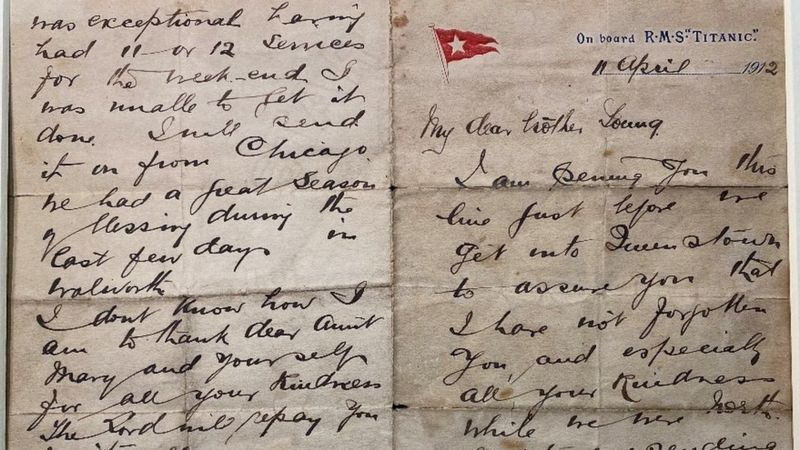 On board R.M.S. "TITANIC."
11 April 1912
My dear brother Young
I am penning you this
line just before we
get into Queenstown
to assure you that
I have not forgotten
you, and especially
all your kindness
while we were North.
sending
was exceptional having
had 11 or 12 Services
for the week-end I
was unable to get it
done. I will send
it on from Chicago.
We had a great season
of blessing during the
last few days in
Walworth.
I dont know how I
am to thank dear Aunt
Mary and yourself
for all your kindness
The Lord will repay you